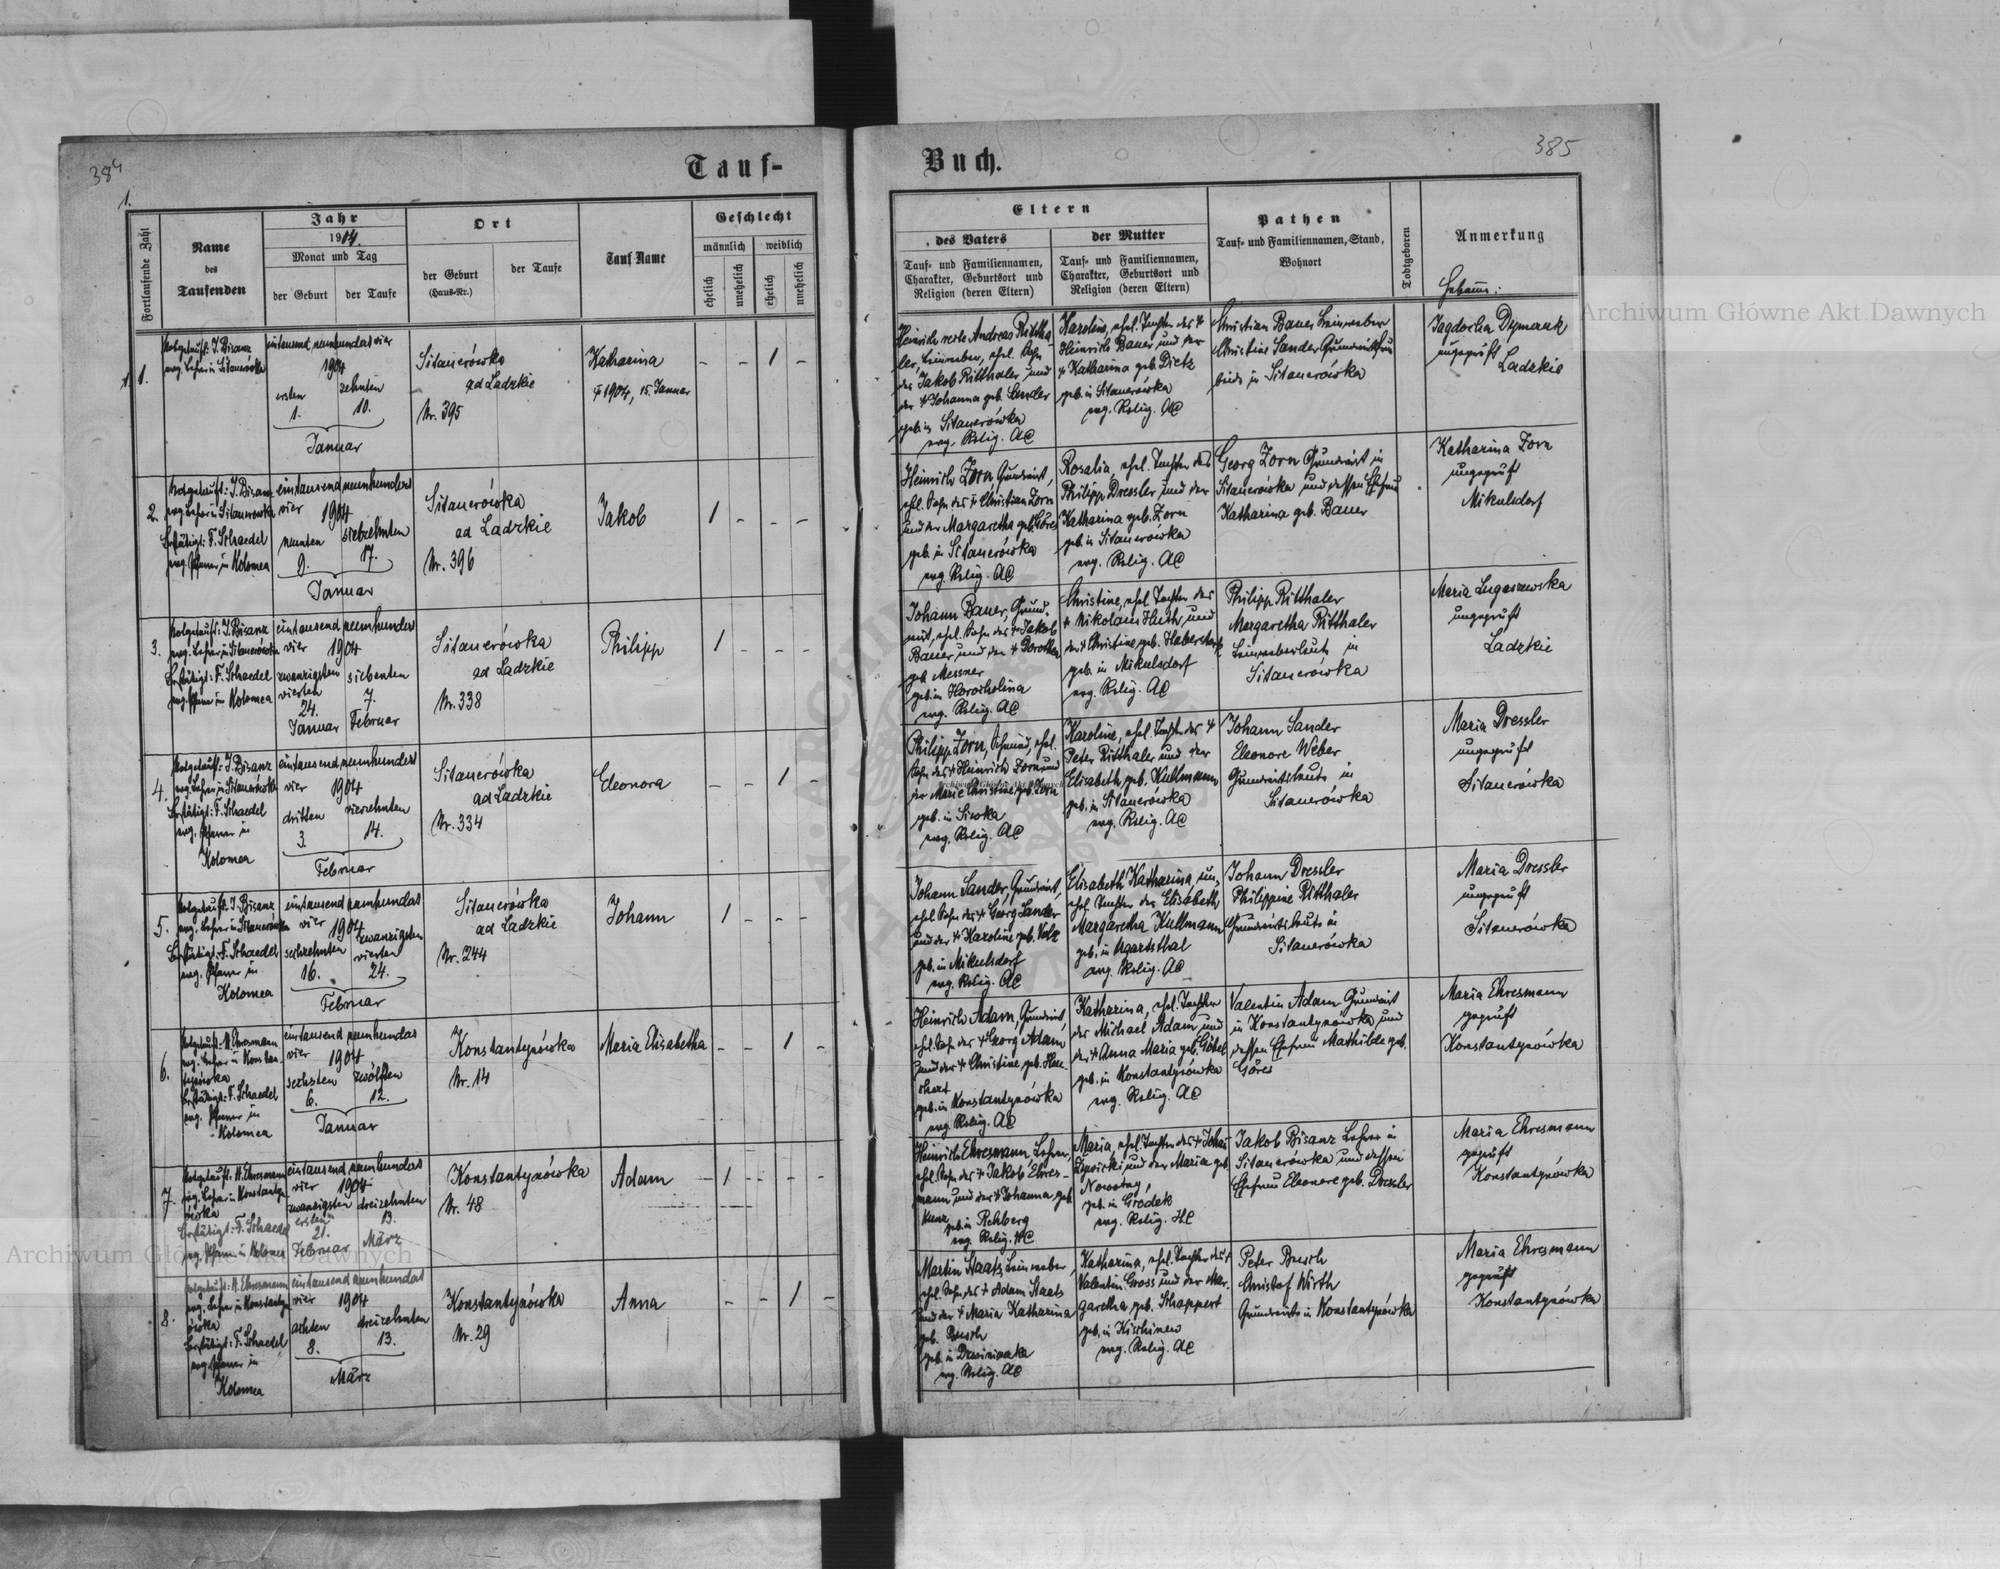 384
385
Tauf-
Buch.
1.
Fortlaufende Zahl
Name
des
Taufenden
Jahr
1904.
Monat und Tag
der Geburt
der Taufe
Ort
der Geburt
(Haus-Nr.)
der Taufe
Tauf Name
Geschlecht
männlich
weiblich
ehelich
unehelich
ehelich
unehelich
Eltern
des Vaters
Tauf- und Familiennamen,
Charakter, Geburtsort und
Religion (deren Eltern)
der Mutter
Tauf- und Familiennamen,
Charakter, Geburtsort und
Religion (deren Eltern)
Pathen
Tauf- und Familiennamen, Stand,
Wohnort
Todtgeboren
Anmerkung
Hebamme:
1.
Notgetauft: J. Bisanz
evg. Lehrer in Sitauerówka
eintausend neunhundert vier
1904
ersten
1.
zehnten
10.
Januar
Sitauerówka
ad Ladzkie
Nr. 395
Katharina
1904, 15. Januar
- - 1 -
Heinrich recte Andreas Rittha-
ler, Leinweber, ehel. Sohn
des Jakob Ritthaler und
der + Johanna geb. Sander
geb. in Sitauerówka
evg. Relig. AC
Karoline, ehel. Tochter des +
Heinrich Bauer und der
+ Katharina geb. Dietz
geb. in Sitauerówka
evg. Relig. AC
Christian Bauer Leinweber
Christine Sander Grundwirtsfrau
beide in Sitauerówka
Jagdocha Dymczuk
ungeprüft
Ladzkie
2.
Notgetauft: J. Bisanz
evg. Lehrer in Sitauerówka
Bestätigt: F. Schaedel
evg. Pfarrer in Kolomea
eintausend neunhundert
vier 1904
neunten
9.
siebzehnten
17.
Januar
Sitauerówka
ad Ladzkie
Nr. 396
Jakob
1 - - -
Heinrich Zorn, Grundwirt,
ehel. Sohn des + Christian Zorn
und der Margaretha geb. Göres
geb. in Sitauerówka
evg. Relig. AC
Rosalia, ehel. Tochter des
Philipp Dressler und der
Katharina geb. Zorn
geb. in Sitauerówka
evg. Relig. AC
Georg Zorn Grundwirt in
Sitauerówka und dessen Ehefrau
Katharina geb. Bauer
Katharina Zorn
ungeprüft
Mikulsdorf
3.
Notgetauft: J. Bisanz
evg. Lehrer in Sitauerówka
Bestätigt: F. Schaedel
evg. Pfarrer in Kolomea
eintausend neunhundert
vier 1904
zwanzigsten
vierten
24.
Januar
siebenten
7.
Februar
Sitauerówka
ad Ladzkie
Nr. 338
Philipp
1 - - -
Johann Bauer, Grund-
wirt, ehel. Sohn des + Jakob
Bauer und der + Dorothea
geb. Messner
geb. in Horocholina
evg. Relig. AC
Christine, ehel. Tochter des
+ Nikolaus Huth und
der + Christine geb. Haberstock
geb. in Mikulsdorf
evg. Relig. AC
Philipp Ritthaler
Margaretha Ritthaler
Leinweberleute in
Sitauerówka
Maria Lugaszewska
ungeprüft
Ladzkie
4.
Notgetauft: J. Bisanz
evg. Lehrer in Sitauerówka
Bestätigt: F. Schaedel
evg. Pfarrer in
Kolomea
eintausend neunhundert
vier 1904
dritten
3.
vierzehnten
14.
Februar
Sitauerówka
ad Ladzkie
Nr. 334
Eleonora
- - 1 -
Philipp Zorn, Schmied, ehel.
Sohn des + Heinrich Zorn und
der Marie Christine geb. Zorn
geb. in Siwka
evg. Relig. AC
Karoline, ehel. Tochter des +
Peter Ritthaler und der
Elisabeth geb. Kullmann
geb. in Sitauerówka
evg. Relig. AC
Johann Sander
Eleonore Weber
Grundwirtsleute in
Sitauerówka
Maria Dressler
ungeprüft
Sitauerówka
5.
Notgetauft: J. Bisanz
evg. Lehrer in Sitauerówka
Bestätigt: F. Schaedel
evg. Pfarrer in
Kolomea
eintausend neunhundert
vier 1904
sechzehnten
16.
zwanzigsten
vierten
24.
Februar
Sitauerówka
ad Ladzkie
Nr. 244
Johann
1 - - -
Johann Sander, Grundwirt,
ehel. Sohn des + Georg Sander
und der + Karoline geb. Volz
geb. in Mikulsdorf
evg. Relig. AC
Elisabeth Katharina, un-
ehel. Tochter der Elisabeth
Margaretha Kullmann
geb. in Ugartsthal
evg. Relig. AC
Johann Dressler
Philippine Ritthaler
Grundwirtsleute in
Sitauerówka
Maria Dressler
ungeprüft
Sitauerówka
6.
Notgetauft: H. Ehresmann
evg. Lehrer in Konstan-
tynówka
Bestätigt: F. Schaedel
evg. Pfarrer in
Kolomea
eintausend neunhundert
vier 1904
sechsten
6.
zwölften
12.
Januar
Konstantynówka
Nr. 14
Maria Elisabetha
- - 1 -
Heinrich Adam, Grundwirt,
ehel. Sohn des + Georg Adam
und der + Christine geb. Hau-
geb. in Konstantynówka
evg. Relig. AC
Katharina, ehel. Tochter
des Michael Adam und
der + Anna Maria geb. Göbel
geb. in Konstantynówka
evg. Relig. AC
Valentin Adam Grundwirt
in Konstantynówka und
dessen Ehefrau Mathilde geb.
Göres
Maria Ehresmann
geprüft
Konstantynówka
7.
Notgetauft: H. Ehresmann
evg. Lehrer in Konstantyn-
ówka
Bestätigt: F. Schaedel
evg. Pfarrer in Kolomea
eintausend neunhundert
vier 1904
zwanzigsten
ersten
21.
Februar
dreizehnten
13.
März
Konstantynówka
Nr. 48
Adam
- 1 - - - -
Heinrich Ehresmann Lehrer,
ehel. Sohn des + Jakob Ehres-
mann und der + Johanna geb.
Kunz
geb. in Rehberg
evg. Relig. HC
Maria, ehel. Tochter des + Johan
Lipnicki und der Maria geb.
Nowotny,
geb. in Gródek
evg. Relig. HC
Jakob Bisanz Lehrer in
Sitauerówka und dessen
Ehefrau Eleonore geb. Dressler
Maria Ehresmann
geprüft
Konstantynówka
8.
Notgetauft: H. Ehresmann
evg. Lehrer in Konstantyn-
ówka
Bestätigt: F. Schaedel
evg. Pfarrer in
Kolomea
eintausend neunhundert
vier 1904
achten
8.
dreizehnten
13.
März
Konstantynówka
Nr. 29
Anna
- - 1 -
Martin Staats, Leinweber,
ehel. Sohn des + Adam Staats
und der + Maria Katharina
geb. Busch
geb. in
evg. Relig. AC
Katharina, ehel. Tochter des +
Valentin Gross und der Mar-
garetha, geb. Schappert
geb. in Kischinew
evg. Relig. AC
Peter Busch
Christof Wirth
Grundwirte in Konstantynówka
Maria Ehresmann
geprüft
Konstantynówka
Archiwum Główne Akt Dawnych
Archiwum Główne Akt Dawnych
Archiwum Główne Akt Dawnych